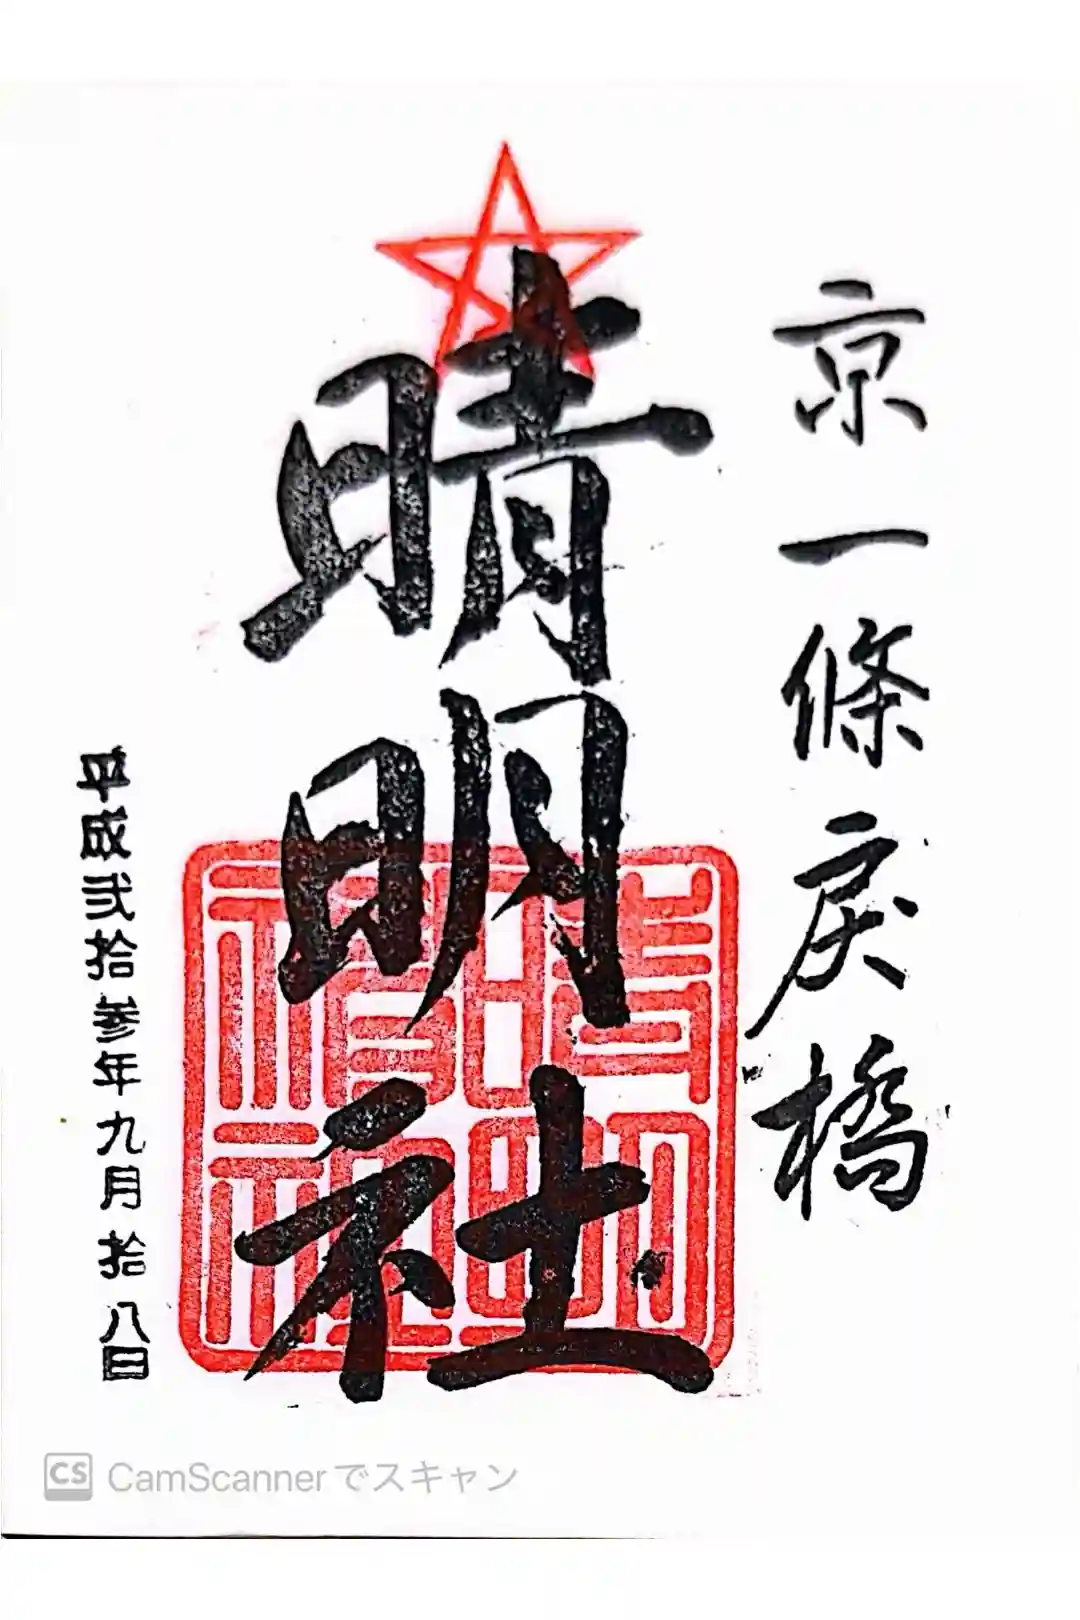 京一條戻橋
晴明社
平成弐拾参年九月拾八日
晴明
神社
CS CamScannerでスキャン